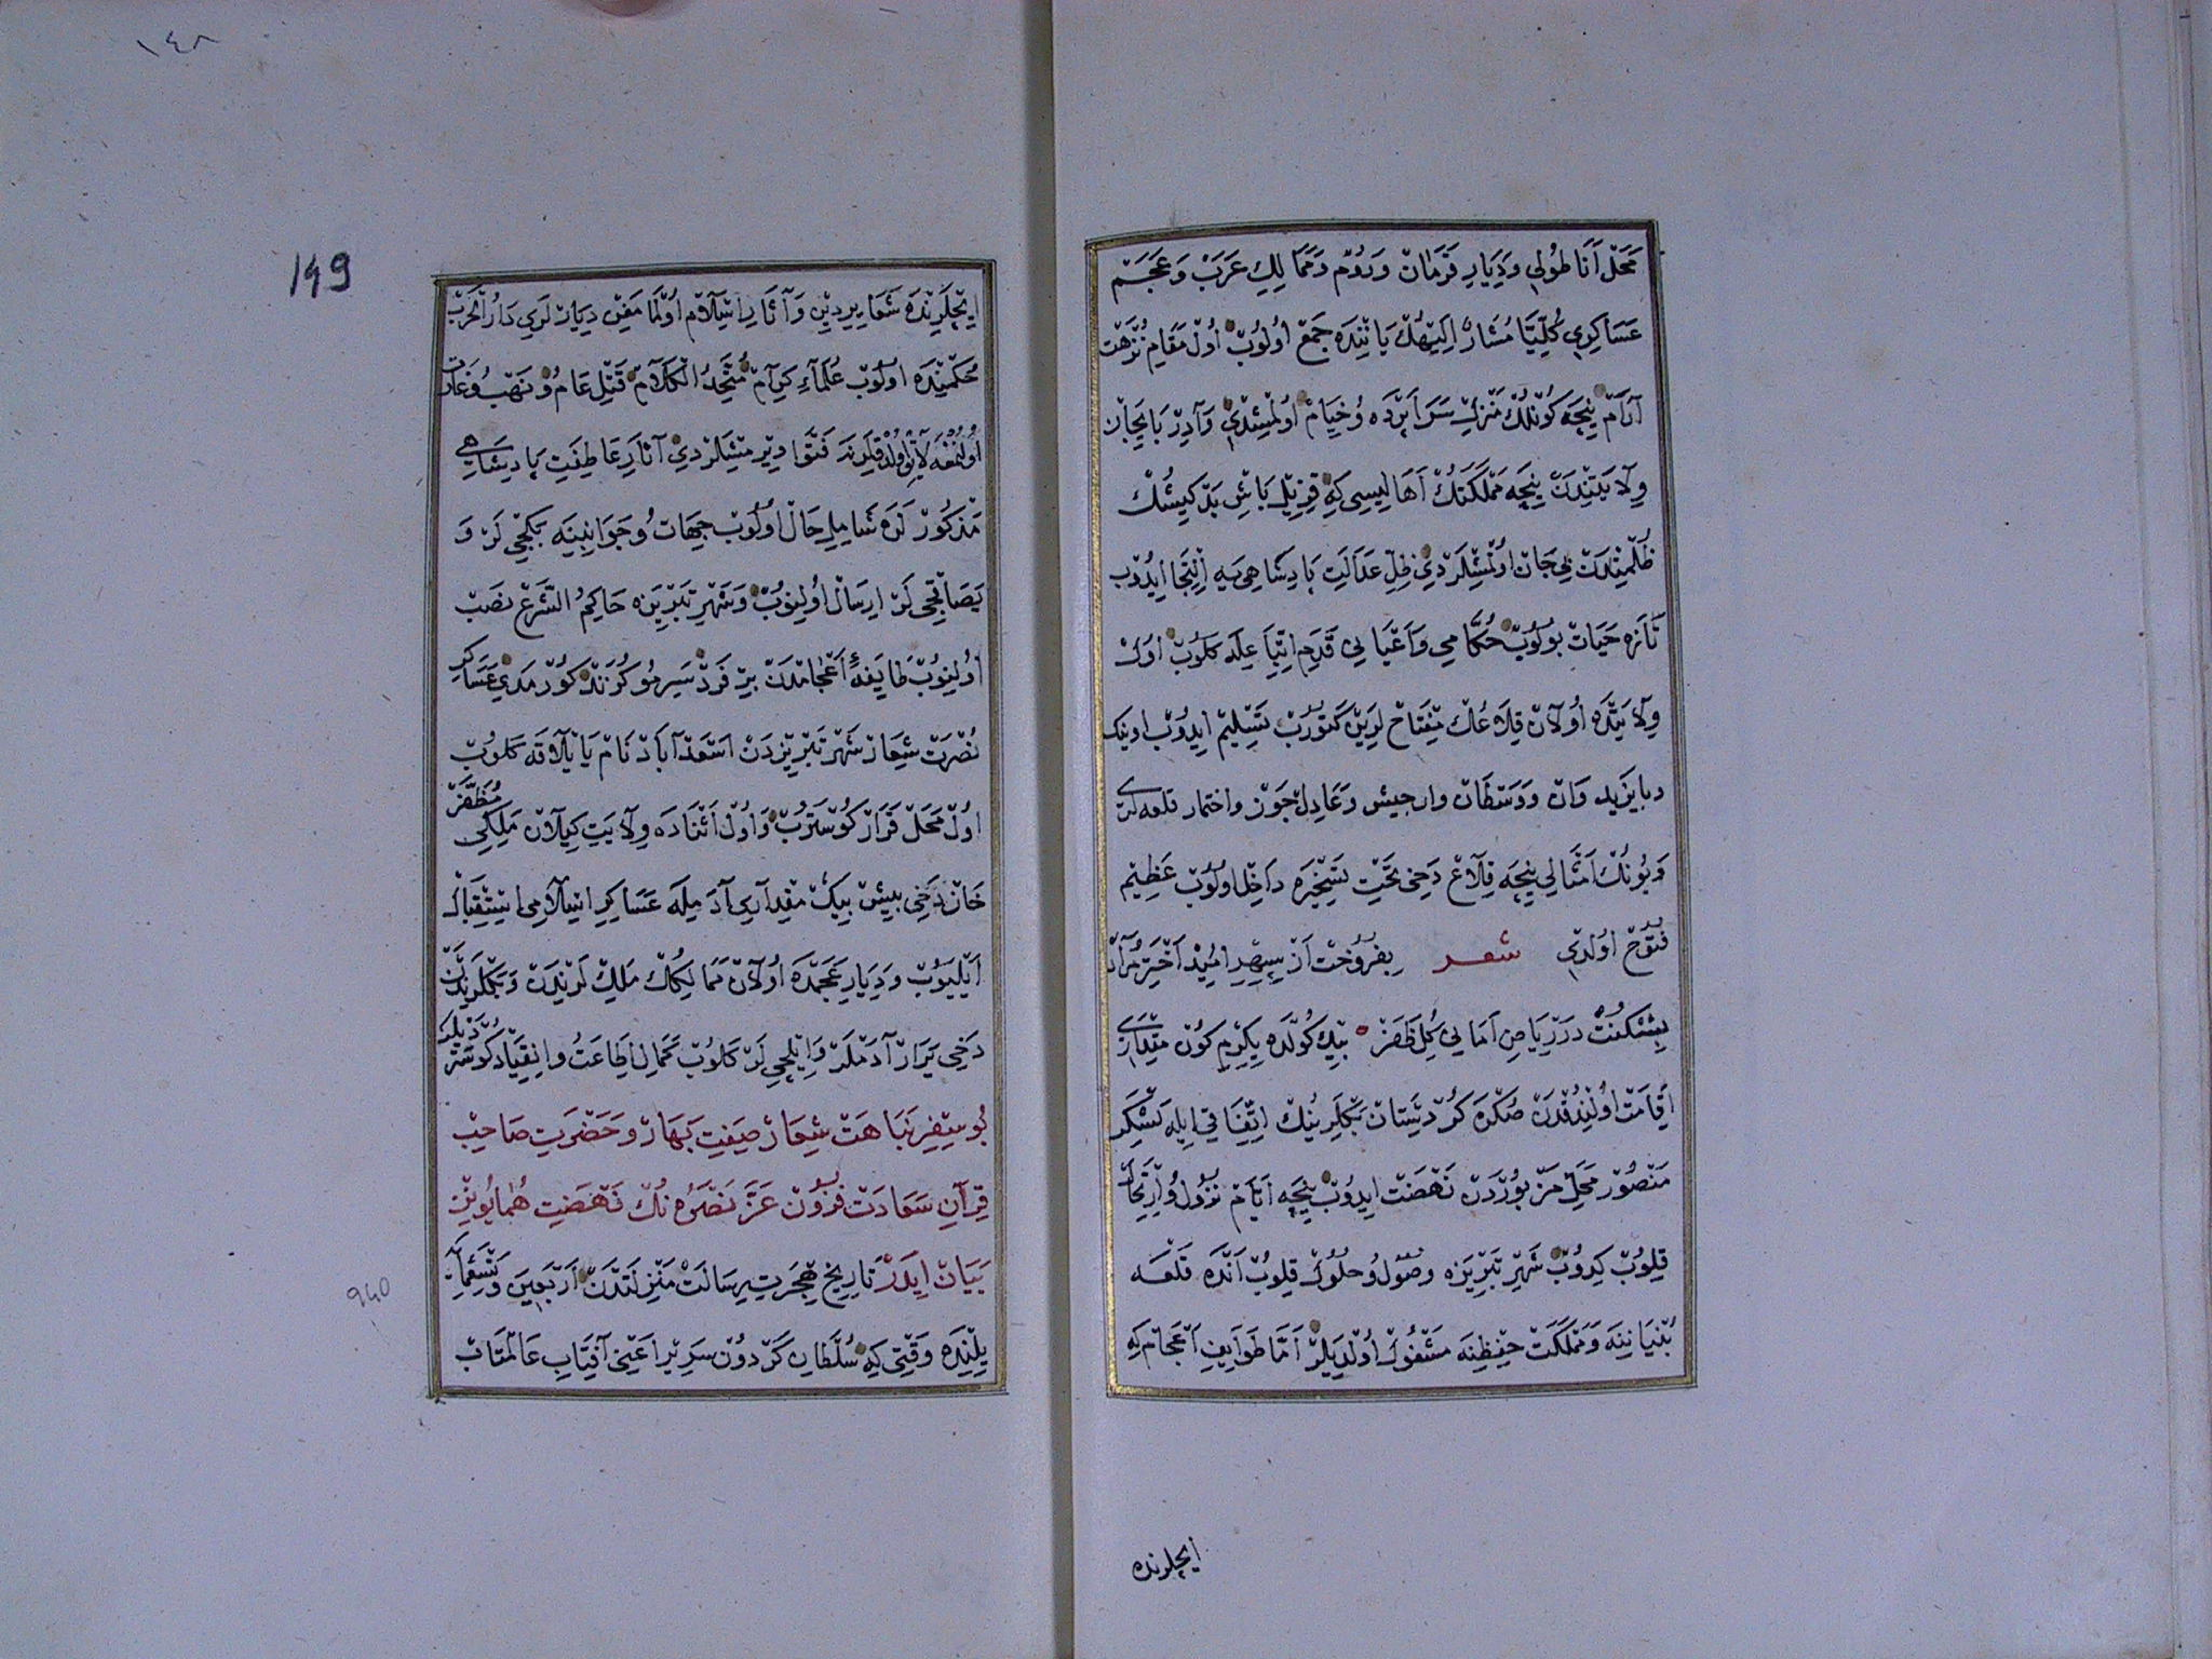 محل اناطولی و دیار قرمان و روم و ممالك عرب و عجم
عساكری كلیتا مشار الیهك یاننده جمع اولوب اول مقام نزهت
آرام نیجه كونلك منزل سراپرده و خیام اولمشدی و آذربایجان
ولایتندن نیجه مملكتك اهالیسی كه قزیل باش بد كیشك
ظلمندن بی جان اولمشلردی ظل عدالت پادشاهی یه التجا ایدوب
تازه حیات بولوب حكامی و اعیانی قدم اتباعله كلوب اول
ولایتده اولان قلاعك مفتاحلرین كتورب تسلیم ایدوب اونیك
و بایزید و ان و وسطان و ارجیش و عادلجوز و اختمار قلعه لری
و بونك امثالی نیجه قلاع دخی تحت تسخیره داخل اولوب عظیم
فتوح اولدی شعر بفروخت از سپهر امید اختر مراد
بشكفت در ریاض امانی گل ظفر بیك كولده یكرمی كون مقداری
اقامت اولندقدن صكره كردستان بكلرینك اتفاقی ایله لشكر
منصور محل مزبوردن نهضت ایدوب نیجه ایام نزول و ارتحال
قلوب كیدوب شهر تبریزه وصول و حلول قلوب انده قلعه
بنیانینه و مملكت حفظنه مشغول اولدیلر اما طوایف اعجام كه
ایچلرنده
١٤٨
149
ایچلرنده شعایر دین و آثار اسلام اولمامغین دیارلری دار الحرب
حكمنده اولوب علماء كرام متحد الكلام قتل عام و نهب و غارات
فتوا ویرمشلردی آثار عاطفت پادشاهی
مذكورلره شامل حال اولوب جهات و جوانبینه بكجیلر و
یصاقجی لر ارسال اولینوب و شهر تبریزه حاكم الشرع نصب
اولینوب طایفهٔ اعجامدن بر فرد سرمو كزند كورمدی عساكر
نصرت شعار شهر تبریزدن اسعد آباد نام یایلاقه كلوب
اول محل قرار كوسترب و اول اثناده ولایت كیلان ملكی مظفر
خان دخی بیش بیك مقداری آدمیله عساكر اسلامی استقبال
ایلیوب و دیار عجمده اولان ممالكك ملك لرندن و بكلریندن
دخی یرار آدملر و ایلچی لر كلوب كمال اطاعت و انقیاد كوستردیلر
بو سفر نباهت شعار صفت بهار و حضرت صاحب
قران سعادت فزون عز نصره نك نهضت همایونن
بیان ایدر تاریخ هجرت رسالت منزلتدن اربعین و تسعمایه
940
یلنده وقتی كه سلطان كردون سریر اعنی آفتاب عالمتاب